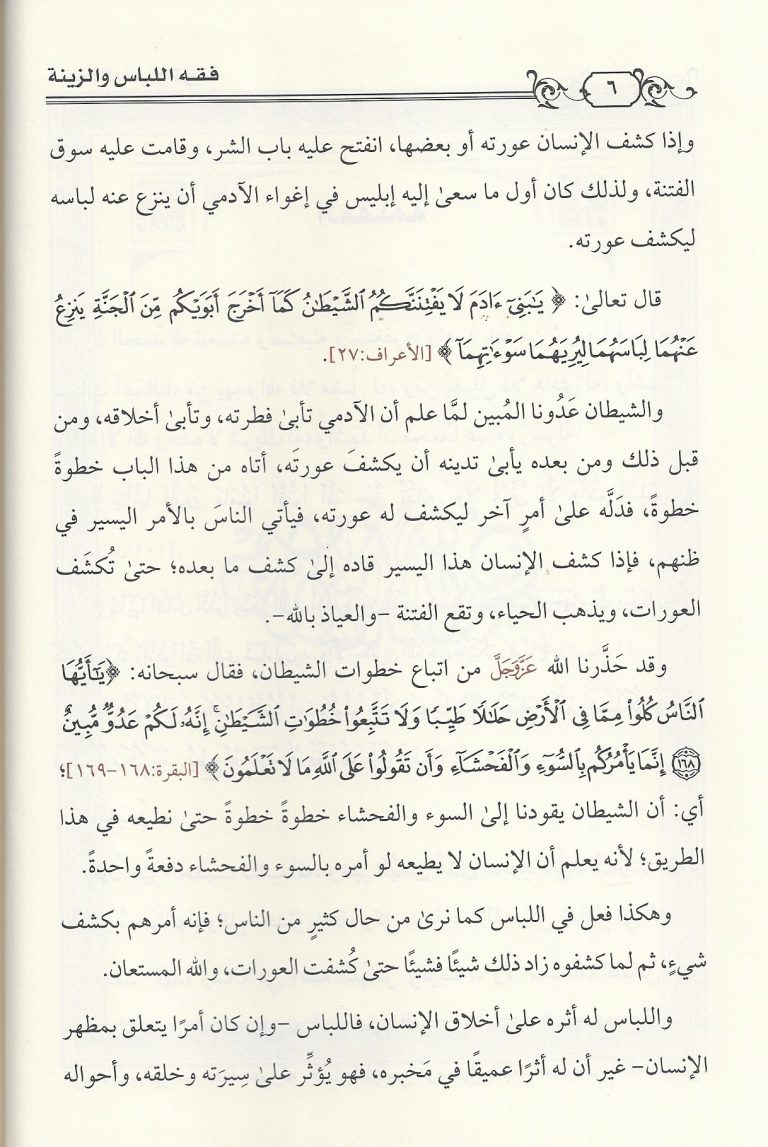 ٦
فقه اللباس والزينة
وإذا كشف الإنسان عورته أو بعضها، انفتح عليه باب الشر، وقامت عليه سوق
الفتنة، ولذلك كان أول ما سعىٰ إليه إبليس في إغواء الآدمي أن ينزع عنه لباسه
ليكشف عورته.
قال تعالىٰ: ﴿يَٰبَنِيٓ ءَادَمَ لَا يَفۡتِنَنَّكُمُ ٱلشَّيۡطَٰنُ كَمَآ أَخۡرَجَ أَبَوَيۡكُم مِّنَ ٱلۡجَنَّةِ يَنزِعُ
عَنۡهُمَا لِبَاسَهُمَا لِيُرِيَهُمَا سَوۡءَٰتِهِمَآ﴾ [الأعراف:٢٧].
والشيطان عَدُونا المُبين لمَّا علم أن الآدمي تأبىٰ فطرته، وتأبىٰ أخلاقه، ومن
قبل ذلك ومن بعده يأبىٰ تدينه أن يكشفَ عورتَه، أتاه من هذا الباب خطوةً
خطوةً، فدَلَّه علىٰ أمرٍ آخر ليكشف له عورته، فيأتي الناسَ بالأمر اليسير في
ظنهم، فإذا كشف الإنسان هذا اليسير قاده إلىٰ كشف ما بعده؛ حتىٰ تُكشَف
العورات، ويذهب الحياء، وتقع الفتنة -والعياذ بالله-.
وقد حَذَّرنا الله عَزَّوَجَلَّ من اتباع خطوات الشيطان، فقال سبحانه: ﴿يَٰٓأَيُّهَا
ٱلنَّاسُ كُلُواْ مِمَّا فِي ٱلۡأَرۡضِ حَلَٰلٗا طَيِّبٗا وَلَا تَتَّبِعُواْ خُطُوَٰتِ ٱلشَّيۡطَٰنِۚ إِنَّهُۥ لَكُمۡ عَدُوّٞ مُّبِينٌ
١٦٨ إِنَّمَا يَأۡمُرُكُم بِٱلسُّوٓءِ وَٱلۡفَحۡشَآءِ وَأَن تَقُولُواْ عَلَى ٱللَّهِ مَا لَا تَعۡلَمُونَ﴾ [البقرة:١٦٨-١٦٩]؛
أي: أن الشيطان يقودنا إلىٰ السوء والفحشاء خطوةً خطوةً حتىٰ نطيعه في هذا
الطريق؛ لأنه يعلم أن الإنسان لا يطيعه لو أمره بالسوء والفحشاء دفعةً واحدةً.
وهكذا فعل في اللباس كما نرىٰ من حال كثيرٍ من الناس؛ فإنه أمرهم بكشف
شيءٍ، ثم لما كشفوه زاد ذلك شيئًا فشيئًا حتىٰ كُشفت العورات، والله المستعان.
واللباس له أثره علىٰ أخلاق الإنسان، فاللباس -وإن كان أمرًا يتعلق بمظهر
الإنسان- غير أن له أثرًا عميقًا في مَخبره، فهو يُؤثِّر علىٰ سِيرَته وخلقه، وأحواله